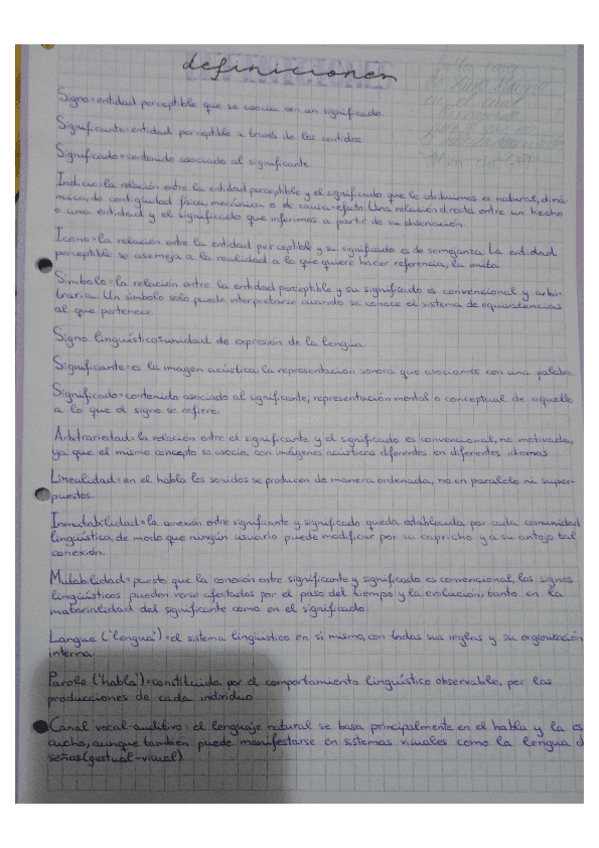 definiciones
Signo=entidad perceptible que se asocia con un significado.
Significante=entidad perceptible a través de los sentidos
Significado=contenido asociado al significante.
Indicio=la relación entre la entidad perceptible y el significado que le atribuimos es natural, diná-
mica, de contigüidad física, mecánica o de causa-efecto. Una relación directa entre un hecho
o una entidad y el significado que inferimos a partir de su observación.
Icono=la relación entre la entidad perceptible y su significado es de semejanza. La entidad
perceptible se asemeja a la realidad a la que quiere hacer referencia, la imita.
Símbolo=la relación entre la entidad perceptible y su significado es convencional y arbi-
traria. Un símbolo solo puede interpretarse cuando se conoce el sistema de equivalencias
al que pertenece.
Signo lingüístico=unidad de expresión de la lengua
Significante=es la imagen acústica, la representación sonora que asociamos con una palabra.
Significado=contenido asociado al significante; representación mental o conceptual de aquello
a lo que el signo se refiere.
Arbitrariedad=la relación entre el significante y el significado es convencional, no motivada,
ya que el mismo concepto se asocia con imágenes acústicas diferentes en diferentes idiomas.
Linealidad=en el habla los sonidos se producen de manera ordenada, no en paralelo ni super-
puestos.
Inmutabilidad=la conexión entre significante y significado queda establecida por cada comunidad
lingüística, de modo que ningún usuario puede modificar por su capricho y a su antojo tal
conexión.
Mutabilidad=puesto que la conexión entre significante y significado es convencional, los signos
lingüísticos pueden verse afectados por el paso del tiempo y la evolución, tanto en la
materialidad del significante como en el significado.
Langue ("lengua")=el sistema lingüístico en sí mismo, con todas sus reglas y su organización
interna.
Parole ("habla")=constituida por el comportamiento lingüístico observable, por las
producciones de cada individuo
Canal vocal-auditivo=el lenguaje natural se basa principalmente en el habla y la es
cucha, aunque también puede manifestarse en sistemas visuales como la lengua d
señas (gestual-visual)